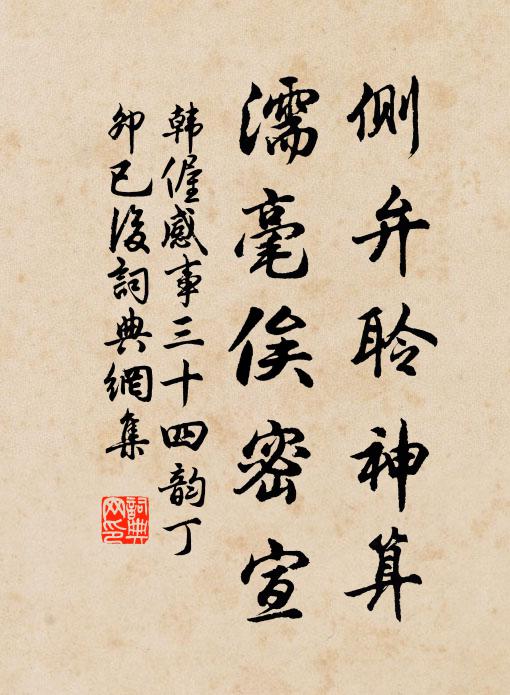 側弁聆神算
濡毫俟密宣
韩偓感事三十四韵丁
卯已後詞典網集
詞典网印